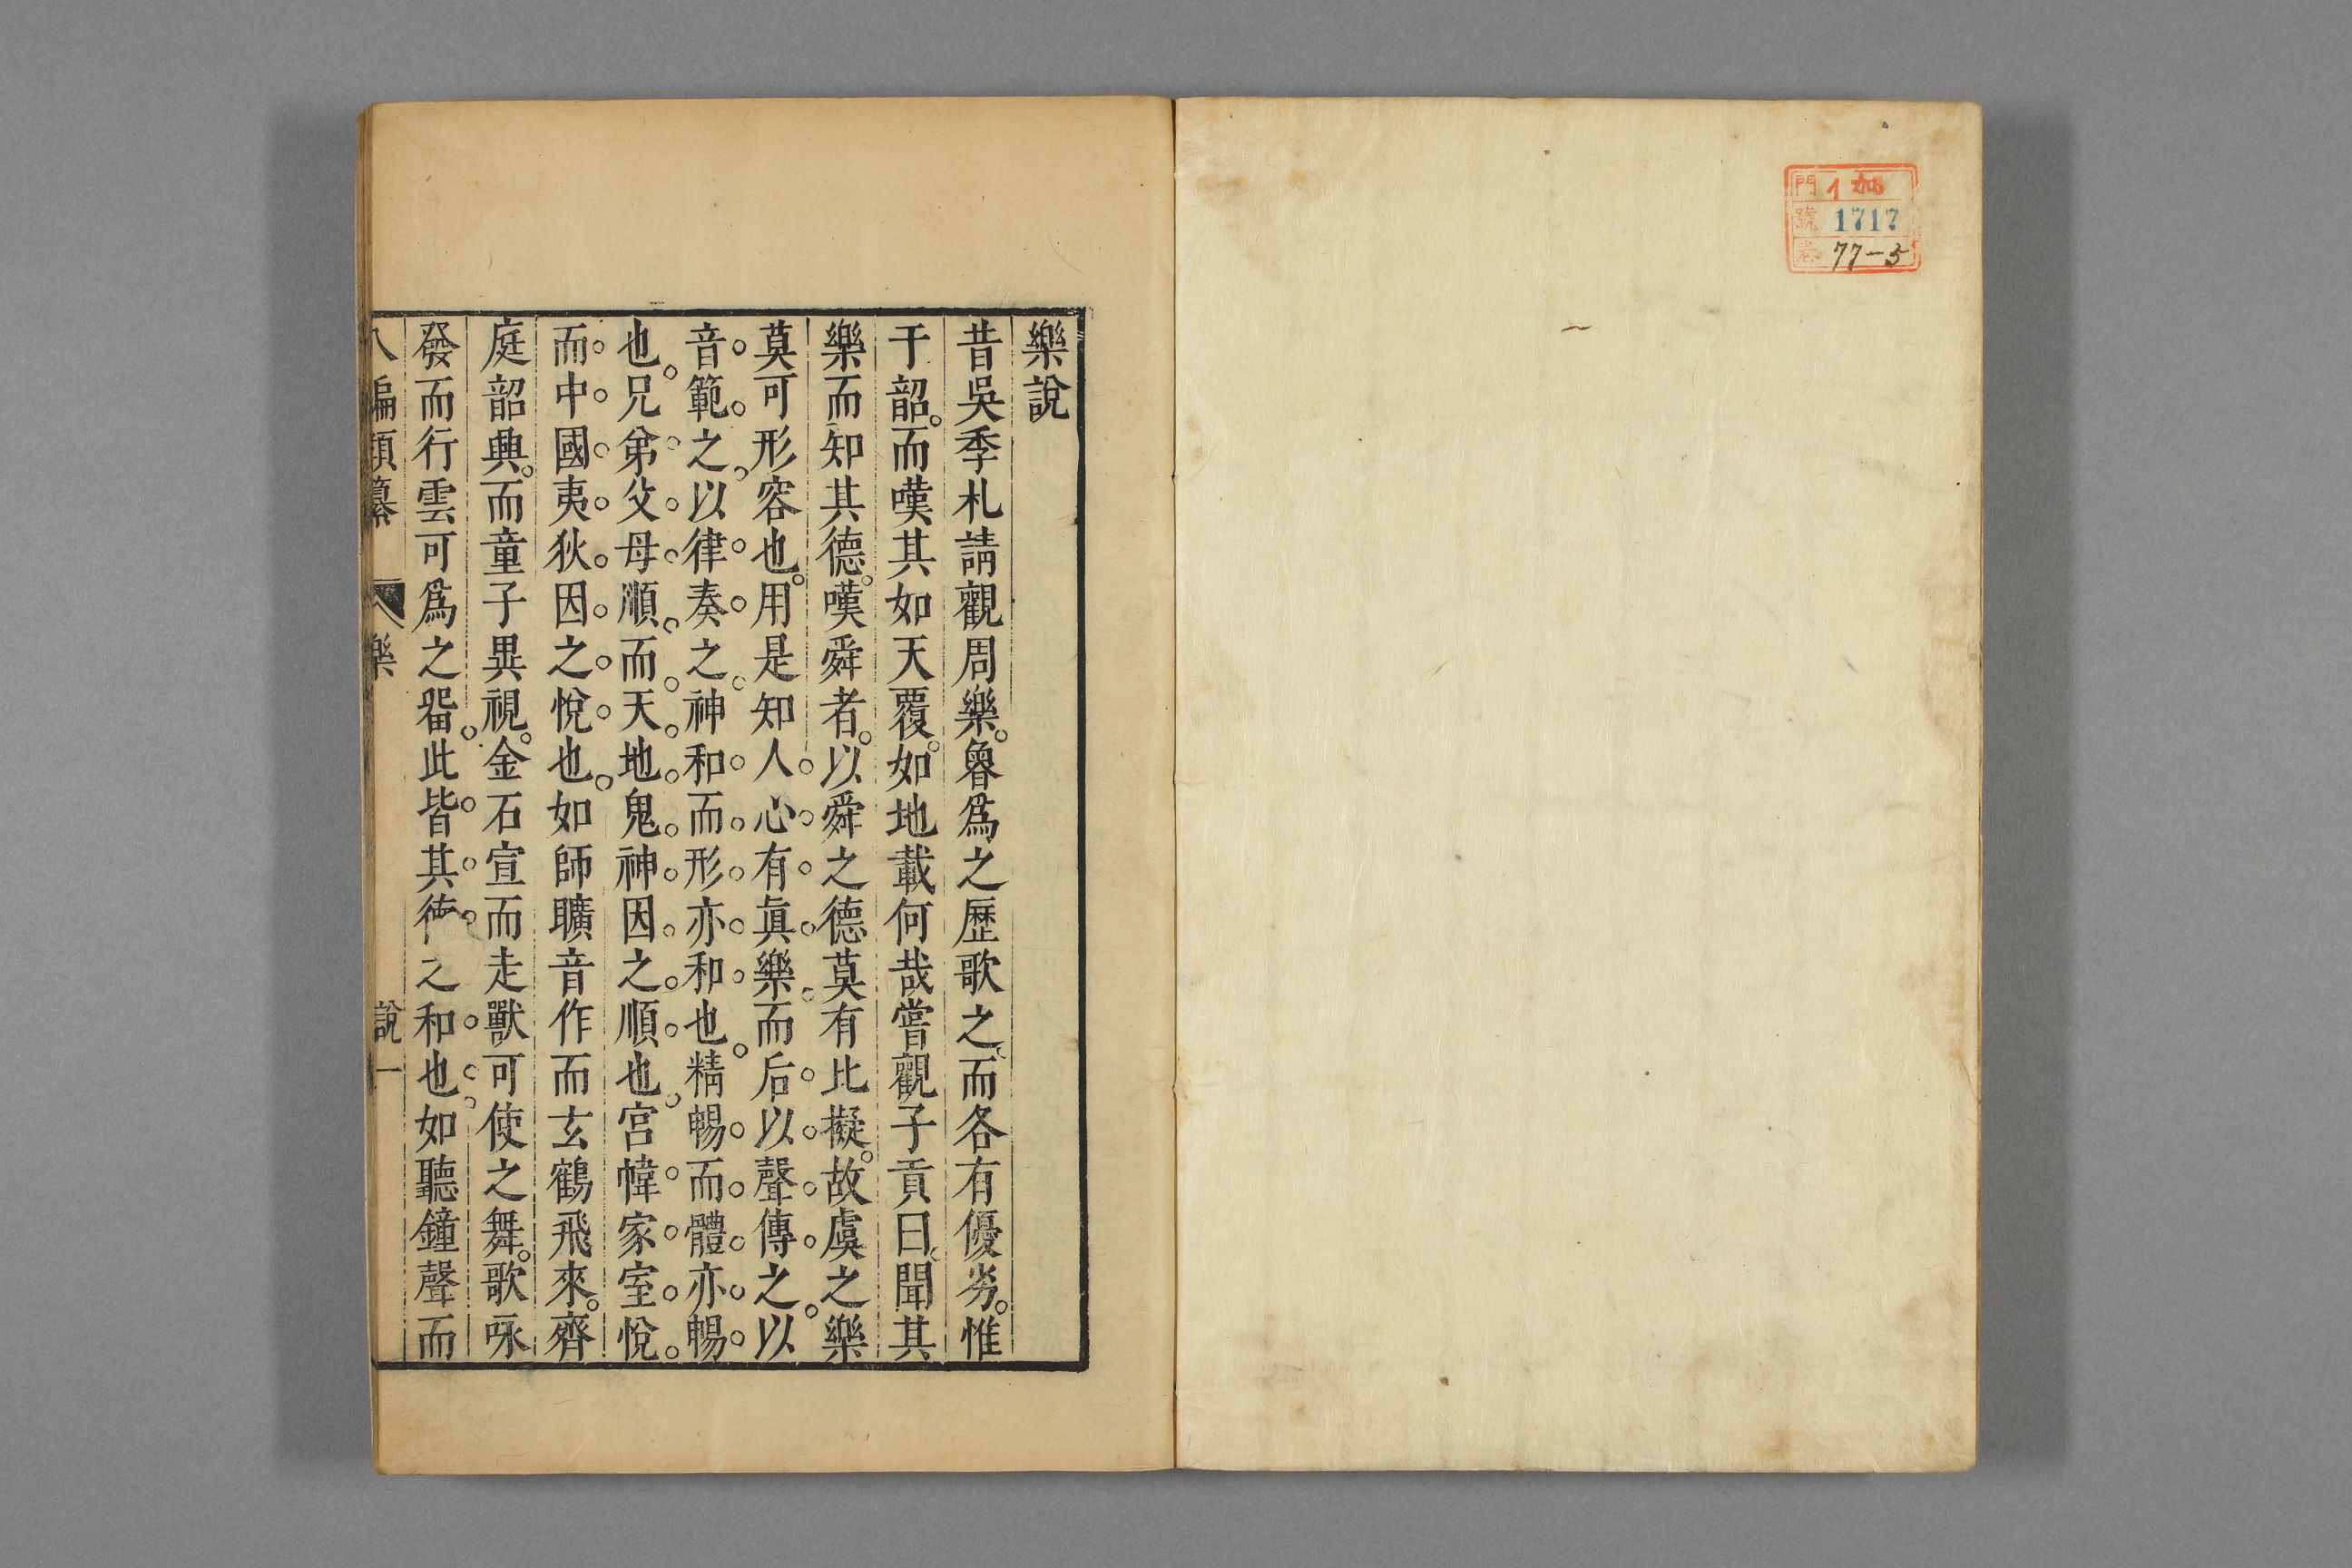 門 イ 加
號 1717
卷 77-5
樂說
昔吳季札請觀周樂。魯爲之歷歌之而各有優劣。惟
于韶。而嘆其如天覆。如地載何哉嘗觀子貢曰聞其
樂而知其德。嘆舜者。以舜之德莫有比擬。故虞之樂
莫可形容也。用是知人心有眞樂而后以聲傳之。以
音範之。以律奏之。神和而形亦和也。精暢而體亦暢
也。兄弟父母順。而天地鬼神因之順也。宮幃家室悅。
而中國夷狄因之悅也。如師曠音作而玄鶴飛來。齊
庭韶興。而童子異視。金石宣而走獸可使之舞。歌咏
發而行雲可爲之畱。此皆其德之和也。如聽鐘聲而
八編類纂 樂 說 一